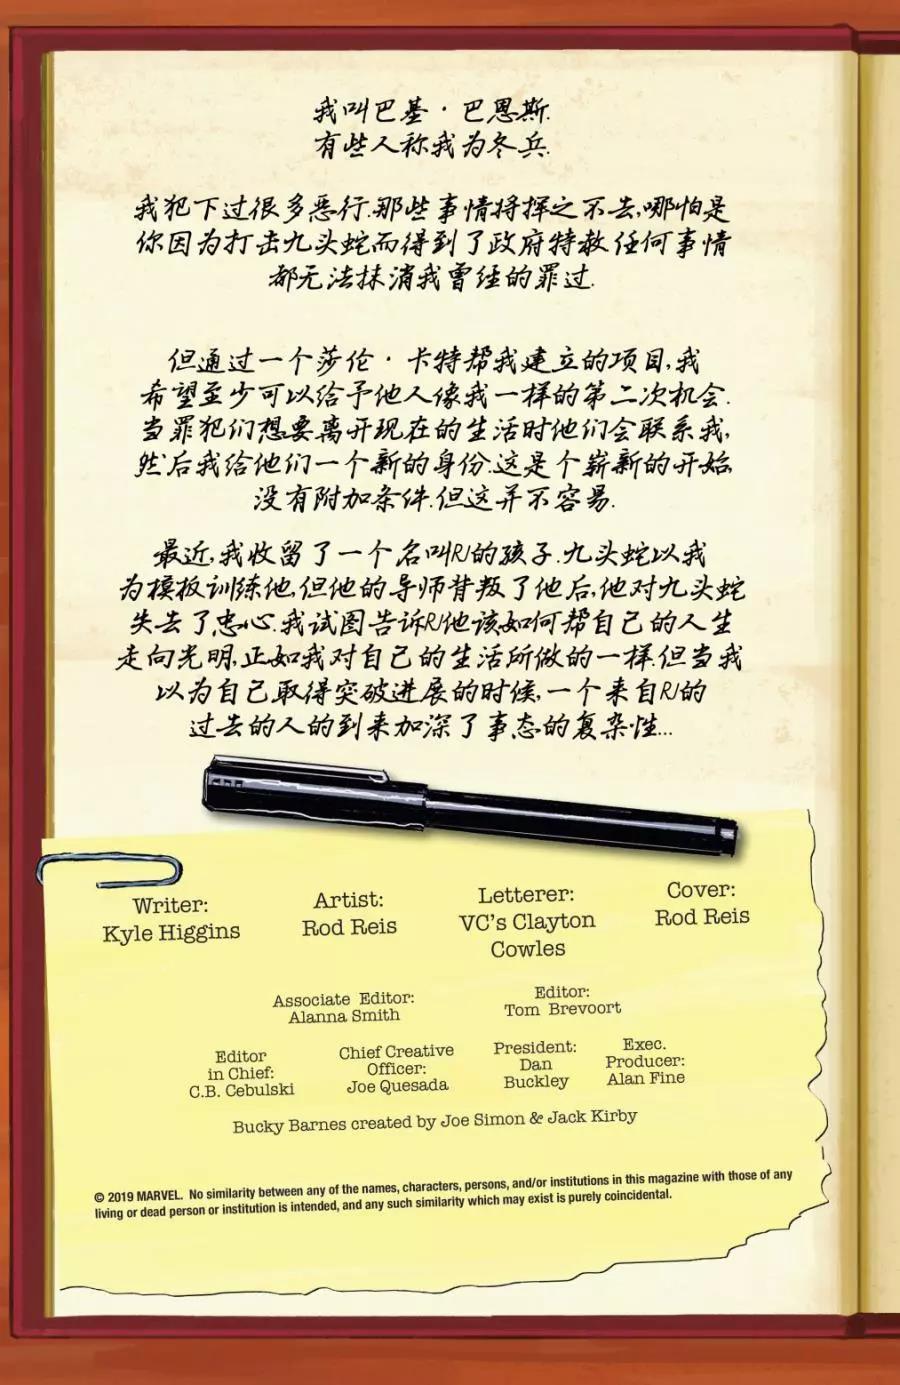 我叫巴基·巴恩斯.
有些人称我为冬兵.
我犯下过很多恶行.那些事情将挥之不去,哪怕是
你因为打击九头蛇而得到了政府特赦.任何事情
都无法抹消我曾经的罪过.
但通过一个莎伦·卡特帮我建立的项目,我
希望至少可以给予他人像我一样的第二次机会.
当罪犯们想要离开现在的生活时他们会联系我,
然后我给他们一个新的身份.这是个崭新的开始,
没有附加条件.但这并不容易.
最近,我收留了一个名叫RJ的孩子.九头蛇以我
为模板训练他,但他的导师背叛了他后,他对九头蛇
失去了忠心.我试图告诉RJ他该如何帮自己的人生
走向光明,正如我对自己的生活所做的一样.但当我
以为自己取得突破进展的时候,一个来自RJ的
过去的人的到来加深了事态的复杂性...
Writer:
Kyle Higgins
Artist:
Rod Reis
Letterer:
VC's Clayton
Cowles
Cover:
Rod Reis
Associate Editor:
Alanna Smith
Editor:
Tom Brevoort
Editor
in Chief:
C.B. Cebulski
Chief Creative
Officer:
Joe Quesada
President:
Dan
Buckley
Exec.
Producer:
Alan Fine
Bucky Barnes created by Joe Simon & Jack Kirby
© 2019 MARVEL. No similarity between any of the names, characters, persons, and/or institutions in this magazine with those of any
living or dead person or institution is intended, and any such similarity which may exist is purely coincidental.